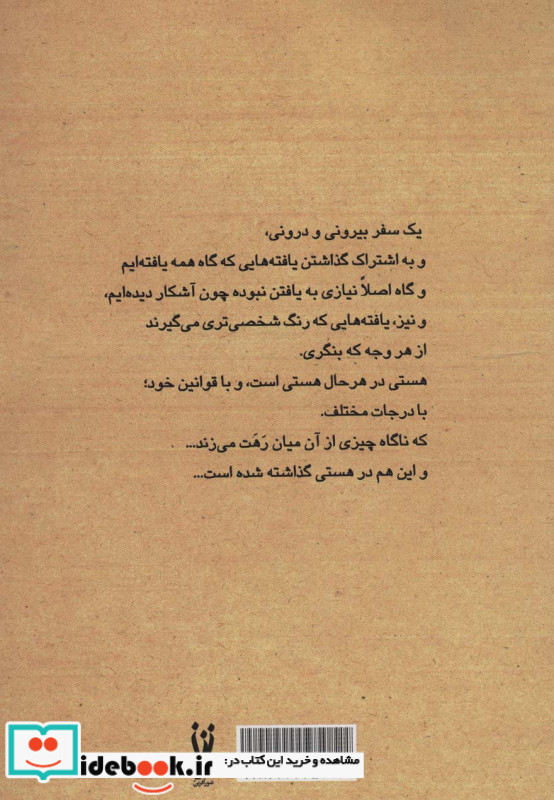 یک سفر بیرونی و درونی،
و به اشتراک گذاشتن یافته‌هایی که گاه همه یافته‌ایم
و گاه اصلاً نیازی به یافتن نبوده چون آشکار دیده‌ایم،
و نیز، یافته‌هایی که رنگ شخصی‌تری می‌گیرند
از هر وجه که بنگری.
هستی در هرحال هستی است، و با قوانین خود؛
با درجات مختلف.
که ناگاه چیزی از آن میان رَهَت می‌زند...
و این هم در هستی گذاشته شده است...
مشاهده و خرید این کتاب در:
idebook.ir